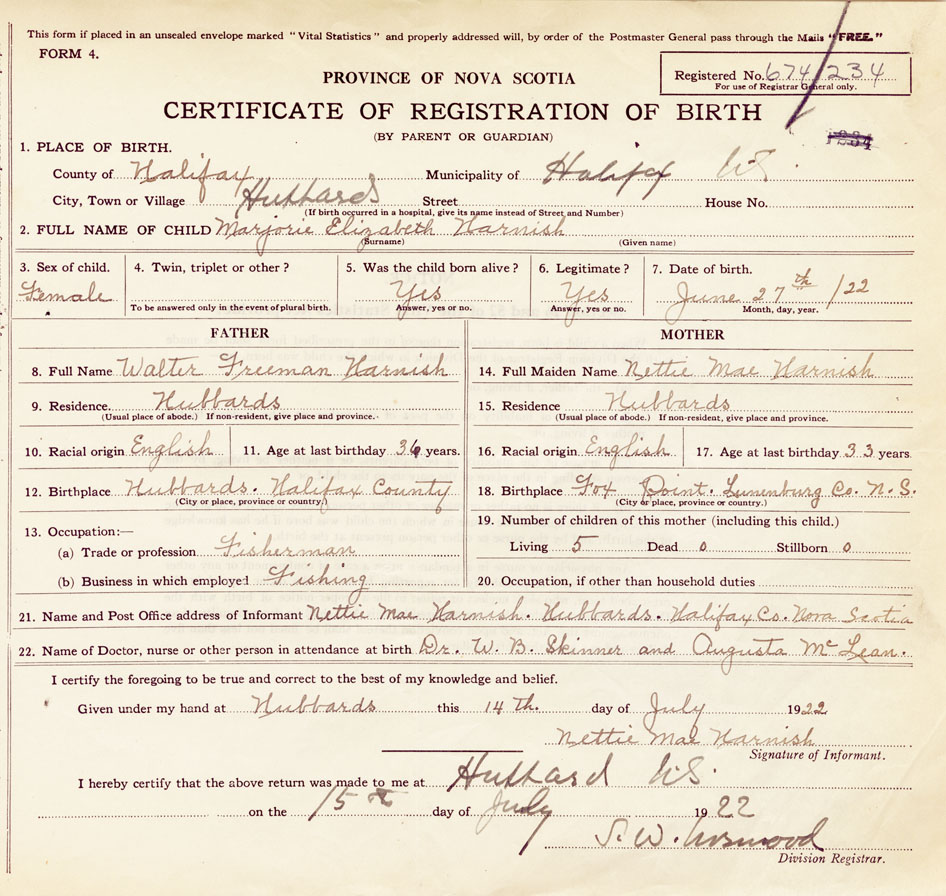 This form if placed in an unsealed envelope marked "Vital Statistics" and properly addressed will, by order of the Postmaster General pass through the Mails "FREE."
FORM 4.
PROVINCE OF NOVA SCOTIA
Registered No. 674/234
For use of Registrar General only.
CERTIFICATE OF REGISTRATION OF BIRTH
(BY PARENT OR GUARDIAN)
1. PLACE OF BIRTH.
County of Halifax Municipality of Halifax NS
City, Town or Village Hubbards Street House No.
(If birth occurred in a hospital, give its name instead of Street and Number)
2. FULL NAME OF CHILD Marjorie Elizabeth Harnish
(Surname) (Given name)
3. Sex of child. 4. Twin, triplet or other? 5. Was the child born alive? 6. Legitimate? 7. Date of birth.
Female Yes Yes June 27th /22
To be answered only in the event of plural birth. Answer, yes or no. Answer, yes or no. Month, day, year.
FATHER MOTHER
8. Full Name Walter Freeman Harnish 14. Full Maiden Name Nettie Mae Harnish
9. Residence. Hubbards 15. Residence Hubbards
(Usual place of abode.) If non-resident, give place and province. (Usual place of abode.) If non-resident, give place and province.
10. Racial origin English 11. Age at last birthday 36 years. 16. Racial origin English 17. Age at last birthday 33 years
12. Birthplace Hubbards. Halifax County 18. Birthplace Fox Point. Lunenburg Co. N.S.
(City or place, province or country) (City or place, province or country.)
13. Occupation:— 19. Number of children of this mother (including this child.)
(a) Trade or profession Fisherman Living 5 Dead 0 Stillborn 0
(b) Business in which employed Fishing 20. Occupation, if other than household duties
21. Name and Post Office address of Informant Nettie Mae Harnish. Hubbards. Halifax Co. Nova Scotia
22. Name of Doctor, nurse or other person in attendance at birth Dr. W. B. Skinner and Augusta McLean.
I certify the foregoing to be true and correct to the best of my knowledge and belief.
Given under my hand at Hubbards this 14th. day of July 1922
Nettie Mae Harnish
Signature of Informant.
I hereby certify that the above return was made to me at Hubbard NS.
on the 15th day of July 1922
S. W.
Division Registrar.